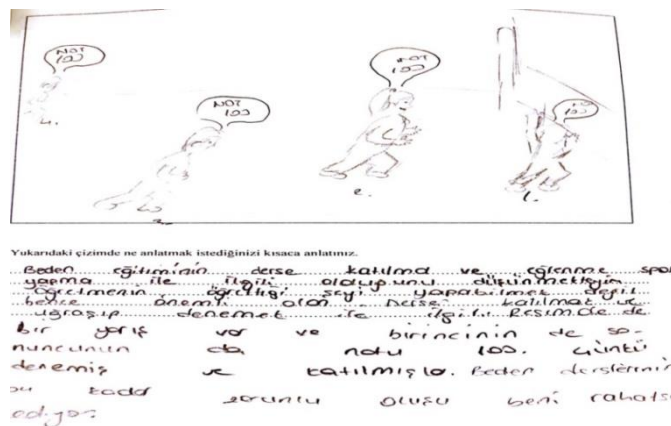 NOT
100
NOT
100
NOT
100
NOT
100
4.
3.
2.
1.
Yukarıdaki çizimde ne anlatmak istediğinizi kısaca anlatınız.
Beden eğitiminin derse katılma ve eğlenme spor
yapma ile ilgili olduğunu düşünmekteyim
öğretmenin öğrettiği şeyi yapabilmek değil
bence önemli olan derse katılmak ve
uğraşıp denemek ile ilgili. Resimde de
bir yarış var ve birincinin de so-
nuncunun da notu 100. Çünkü
denemiş ve katılmışla. Beden derslerinin
bu kadar sorunlu oluşu beni rahats
ediyor.